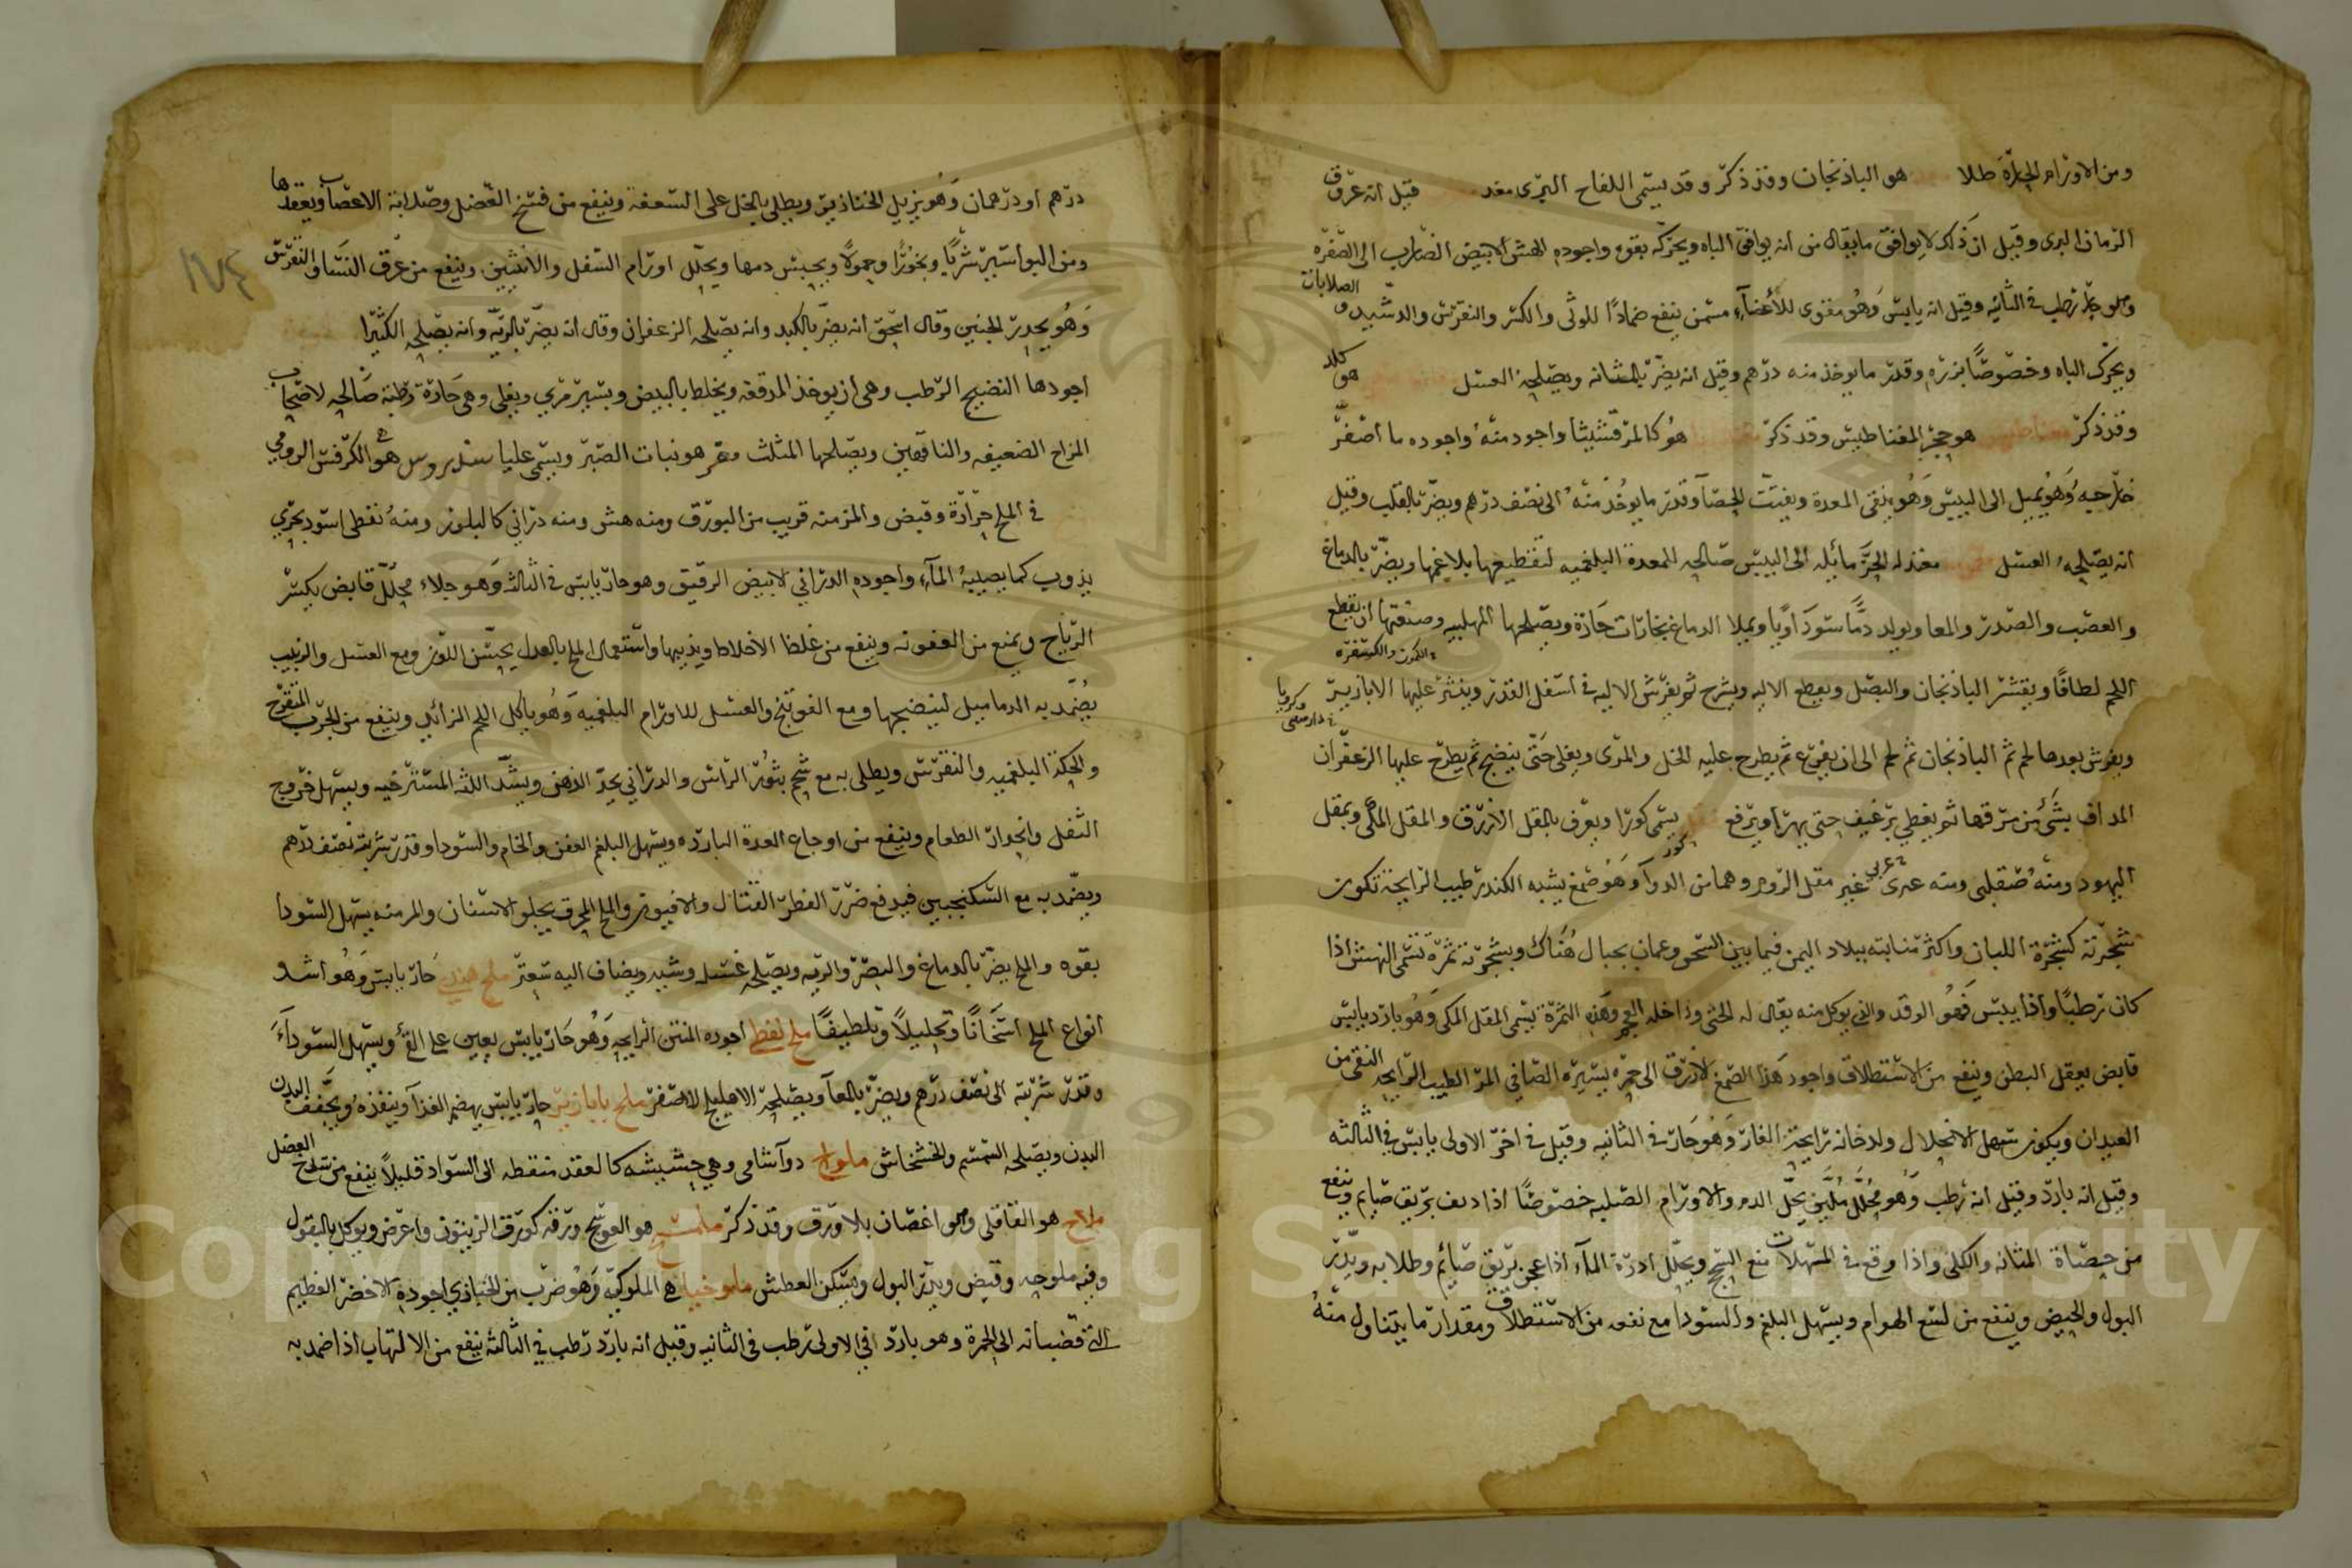 ومن الاورام الحارة طلا هو الباذنجان وقد ذكر وقد يسمى اللفاح البرى مغد قيل انه عروق
الرمان البرى وقيل ان ذلك لا يوافق ما يقال من انه يوافق الباه ويحركه بقوه واجوده الهش الابيض الضارب الى الصفره
رطب فى الثانيه وقيل انه يابس وهو مقوى للاعضآء مسمن ينفع ضمادًا للوثى والكسر والنقرس والتشبيد و الصلابات
ويحرك الباه وخصوصًا بزره وقدر ما يوخذ منه درهم وقيل انه يضر بالمثانه ويصلحه العسل هو
وقد ذكر مغناطيس هو حجر المغناطيس وقد ذكر هو كالمرقشيثا واجود منه واجوده ما اصفر
خارجيه وهو يميل الى اليبس وهو ينقى المعدة ويفتت الحصا وقدر ما يوخذ منه الى نصف درهم ويضر بالقلب وقيل
انه يصلحه العسل الحر مايله الى اليبس صالحه للمعدة البلغميه لتقطيعها بلاغمها ويضر بالدماغ
والعصب والصدر والمعا ويولد دمًا سوداويًا ويملا الدماغ بخارات حارة ويصلحها المهلبيه وصنعتها ان يقطع
اللحم لطافًا ويقشر الباذنجان والبصل ويقطع الاليه ويشرح ثم يفرش الاليه فى اسفل القدر وينثر عليها الابازير الكمون والكسفره وكرويا دارصينى
ويفرش بعدها لحم ثم الباذنجان ثم لحم الى ان يفرغ ثم يطرح عليه الخل والمرى ويغلى حتى ينضج ثم يطرح عليها الزعفران
المداف بشئ من مرقها ثم يغطى برغيف حتى يهرا ويرفع يسمى كورا ويعرف بالمقل الازرق والمقل المكى وبمقل
اليهود ومنه صقلبى ومنه عربى غير مقل الروم وهما من الدوآ وهو صمغ يشبه الكندر طيب الرايحة تكون
شجرته كشجرة اللبان واكثر منابته ببلاد اليمن فيما بين الشحر وعمان بجبال هناك وبشجرته ثمرة تسمى النهش اذا
كان رطبًا واذا يبس فهو الوقد والذى يوكل منه يقال له الحتى وداخله العجم وهذه الثمرة تسمى المقل المكى وهو بارد يابس
قابض يعقل البطن وينفع من الاستطلاق واجود هذا الصمغ الازرق الى حمره يسيره الصافى المر الطيب الرايحه النقى من
العيدان ويكون سهل الانحلال ولدخانه رايحة الغار وهو حار فى الثانيه وقيل فى اخر الاولى يابس فى الثالثه
وقيل انه بارد وقيل انه رطب وهو محلل ملين يحلل الدم والاورام الصلبه خصوصًا اذا ديف بريق صايم وينفع
من حصاة المثانه والكلى واذا وقع فى المسهلات منع السحج ويحلل ادرة المآء اذا عجن بريق صايم وطلا به ويدر
البول والحيض وينفع من لسع الهوام ويسهل البلغم والسودا مع نفعه من الاستطلاق ومقدار ما يتناول منه
درهم او درهمان وهو يزيل الخنازير ويطلى بالخل على السعفة وينفع من فسخ العضل وصلابة الاعصاب ويعقدها
ومن البواسير شربًا وبخورًا وحمولًا ويحبس دمها ويحلل اورام السفل والانثيين وينفع من عرق النسا والنقرس
وهو يحدر الجنين وقال اسحق انه يضر بالكبد وانه يصلحه الزعفران وقال انه يضر بالريه وانه يصلحه الكثيرا
اجودها النضيج الرطب وهى ان يوخذ المدققه ويخلط بالبيض ويسير مرى ويغلى وهى حارة رطبة صالحه لاصحاب
المزاج الضعيفه والناقهين ويصلحها المثلث هو نبات الصبر ويسمى هو الكرفس الرومى
فى الملح حرارة وقبض والمزمنه قريب من البورق ومنه هش ومنه درانى كالبلور ومنه نفطى اسود بحرى
يذوب كما يصيبه المآء واجوده الدرانى الابيض الرقيق وهو حار يابس فى الثالثه وهو جلاء محلل قابض يكسر
الرياح ويمنع من العفونه وينفع من غلظ الاخلاط ويذيبها واستعمال الملح بالعدل يحسن اللون ومع العسل والزبيب
يضمد به الدماميل لينضجها ومع الفوتنج والعسل للاورام البلغميه وهو ياكل اللحم الزائد وينفع من الجرب المتقرح
والحكة البلغميه والنقرس ويطلى به مع شحم بثور الراس والدرانى يحد الذهن ويشد اللثه المسترخيه ويسهل خروج
الثفل وانحدار الطعام وينفع من اوجاع المعدة البارده ويسهل البلغم العفن والخام والسودا وقدر شربته نصف درهم
ويضمد به مع السكنجبين فيدفع ضرر الفطر القتال والافيون والملح المحرق يجلو الاسنان والمر منه يسهل السودا
بقوه والملح يضر بالدماغ والبصر والريه ويصلحه غسله وشيه ويضاف اليه سعتر ملح هندى حار يابس وهو اشد
انواع الملح اسخانًا وتحليلًا وتلطيفًا ملح نفطى اجوده المنتن الرايحه وهو حار يابس يعين على القئ ويسهل السودآء
وقدر شربته الى نصف درهم ويضر بالمعآ ويصلحه الاهليلج الاصفر ملح بابازير حار يابس يهضم الغذا وينفذه ويجفف البدن
البدن ويصلحه السمسم والخشخاش ملوار دوآ شامى وهى حشيشه كالعقد منقطه الى السواد قليلًا ينفع من شدخ العضل
ملاح هو القاقلى وهو اغصان بلا ورق وقد ذكر هو العوسج ورقه كورق الزيتون واعرض ويوكل بالبقول
وفيه ملوحه وقبض ويدر البول ويسكن العطش ملوخيا هى الملوكيه وهو ضرب من الخبازى اجوده الاخضر العظيم
التى قضبانه الى الحمرة وهو بارد فى الاولى رطب فى الثانيه وقيل انه بارد رطب فى الثالثه ينفع من الالتهاب اذا ضمد به
١٧٤
Copyright © King Saud University